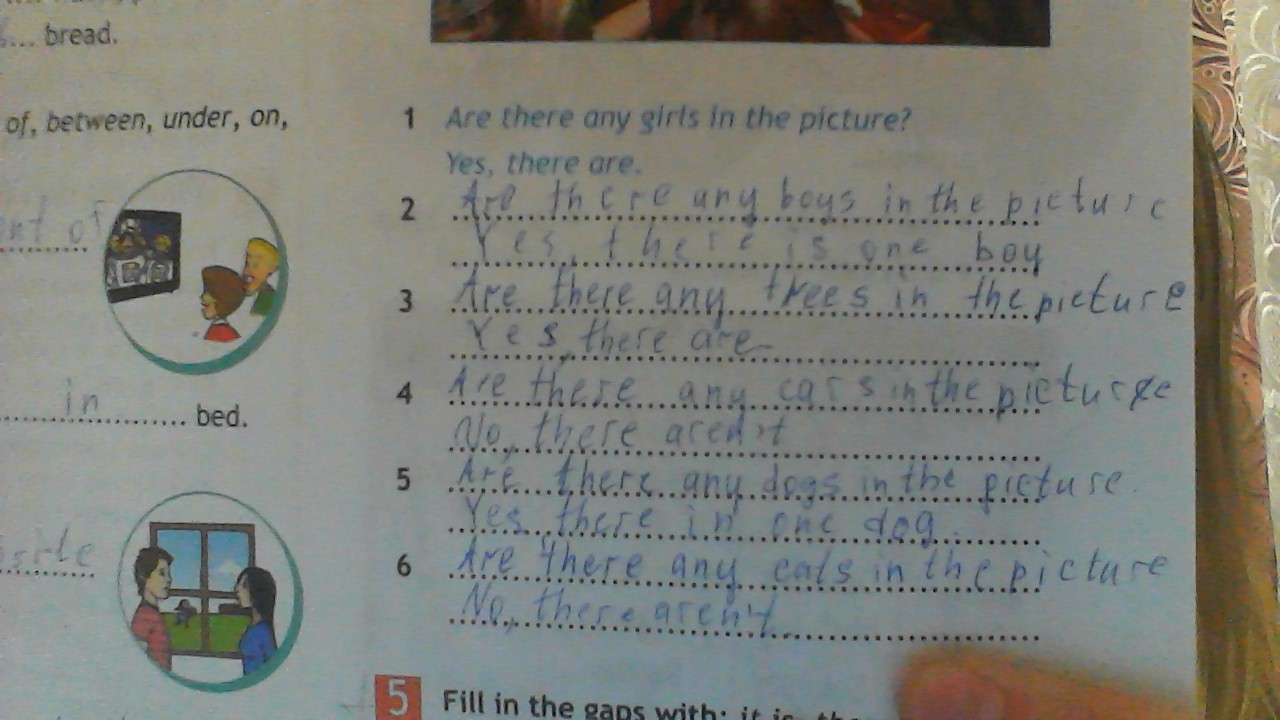 ... bread.
of, between, under, on,
1 Are there any girls in the picture?
Yes, there are.
2 Are there any boys in the picture
Yes, there is one boy
3 Are there any trees in the picture
Yes, there are
4 Are there any cars in the picture
No, there aren't
5 Are there any dogs in the picture.
Yes there in one dog.
6 Are there any cats in the picture
No, there aren't
of
in bed.
5 Fill in the gaps with: it is,